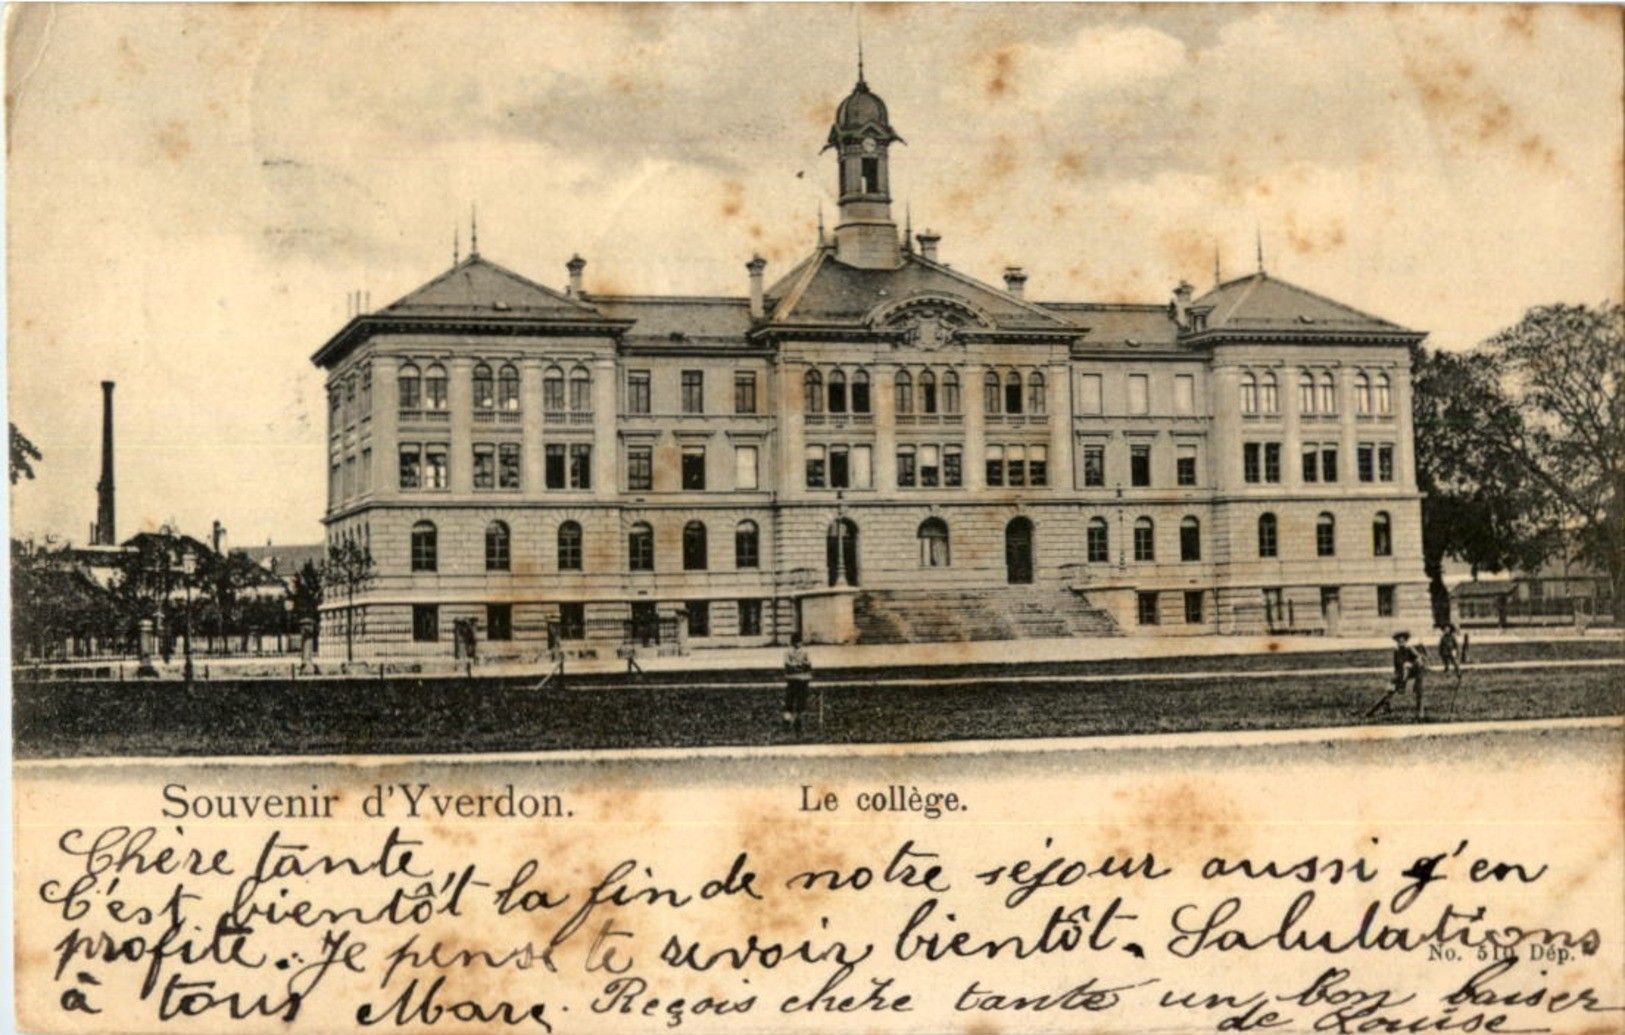 Souvenir d'Yverdon. Le collège.
Chère tante,
C'est bientôt la fin de notre séjour aussi j'en
profite. Je pense te revoir bientôt. Salutations
No. 510 Dép.
à tous Marc. Reçois chère tante un bon baiser
de Louise